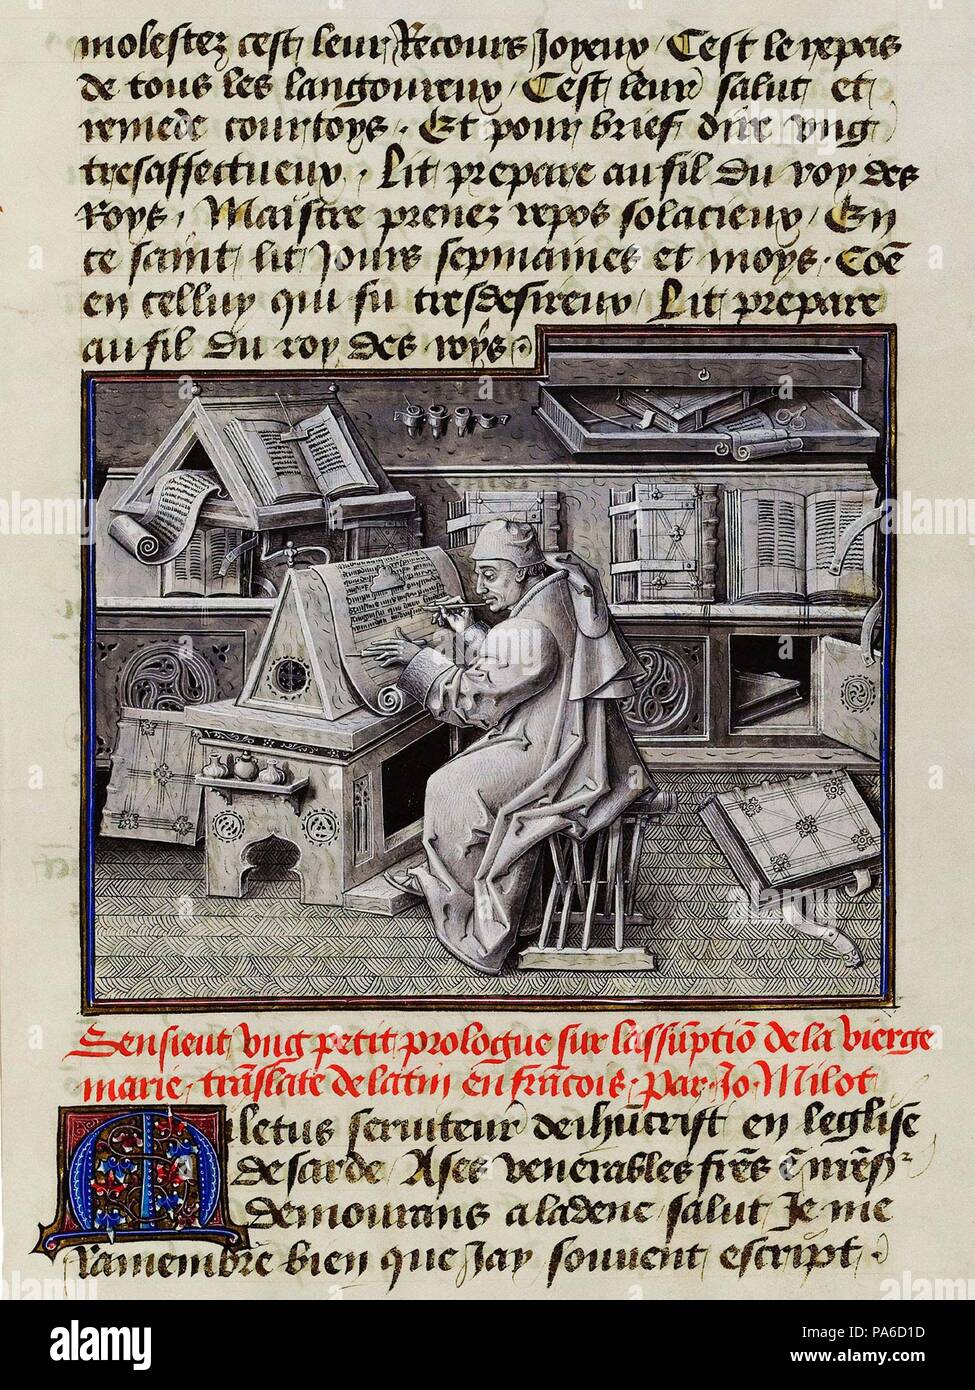 molestez cest leur Recours Joyeux / Cest le repas
de tous les langoureux / Cest leur salut et
remede courtoys. Et pour brief dire vng
tresaffectueux. Lit prepare au fil du roy des
Roys / Maistre prenez repos solacieux / En
ce saint lit Jours sepmaines et moys. Coē
en celluy qui fu tresdesireux / Lit prepare
au fil du roy des roys.
Sensieut vng petit prologue sur lassūptiō de la vierge
marie. trāslate de latin en frācois. par. Jo. Milot
Miletus seruiteur de ihūcrist en leglise
de sarde Ases venerables frēs
demourans a ladence salut Je me
Ramembre bien que Jay souvent escript.
alamy
PA6D1D
www.alamy.com